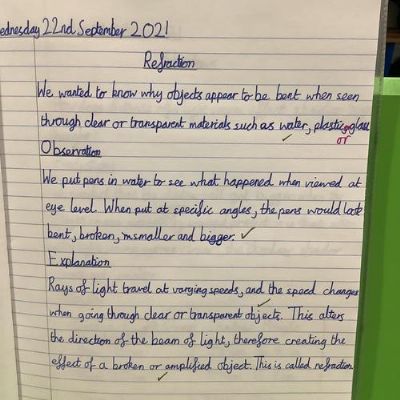 ednesday 22nd September 2021
Refraction
We wanted to know why objects appear to be bent when seen
through clear or transparent materials such as water, plastic, glass
or
Observation
We put pens in water to see what happened when viewed at
eye level. When put at specific angles, the pens would look
bent, broken, smaller and bigger.
Explanation
Rays of light travel at varying speeds, and the speed changes
when going through clear or transparent objects. This alters
the direction of the beam of light, therefore creating the
effect of a broken or amplified object. This is called refraction